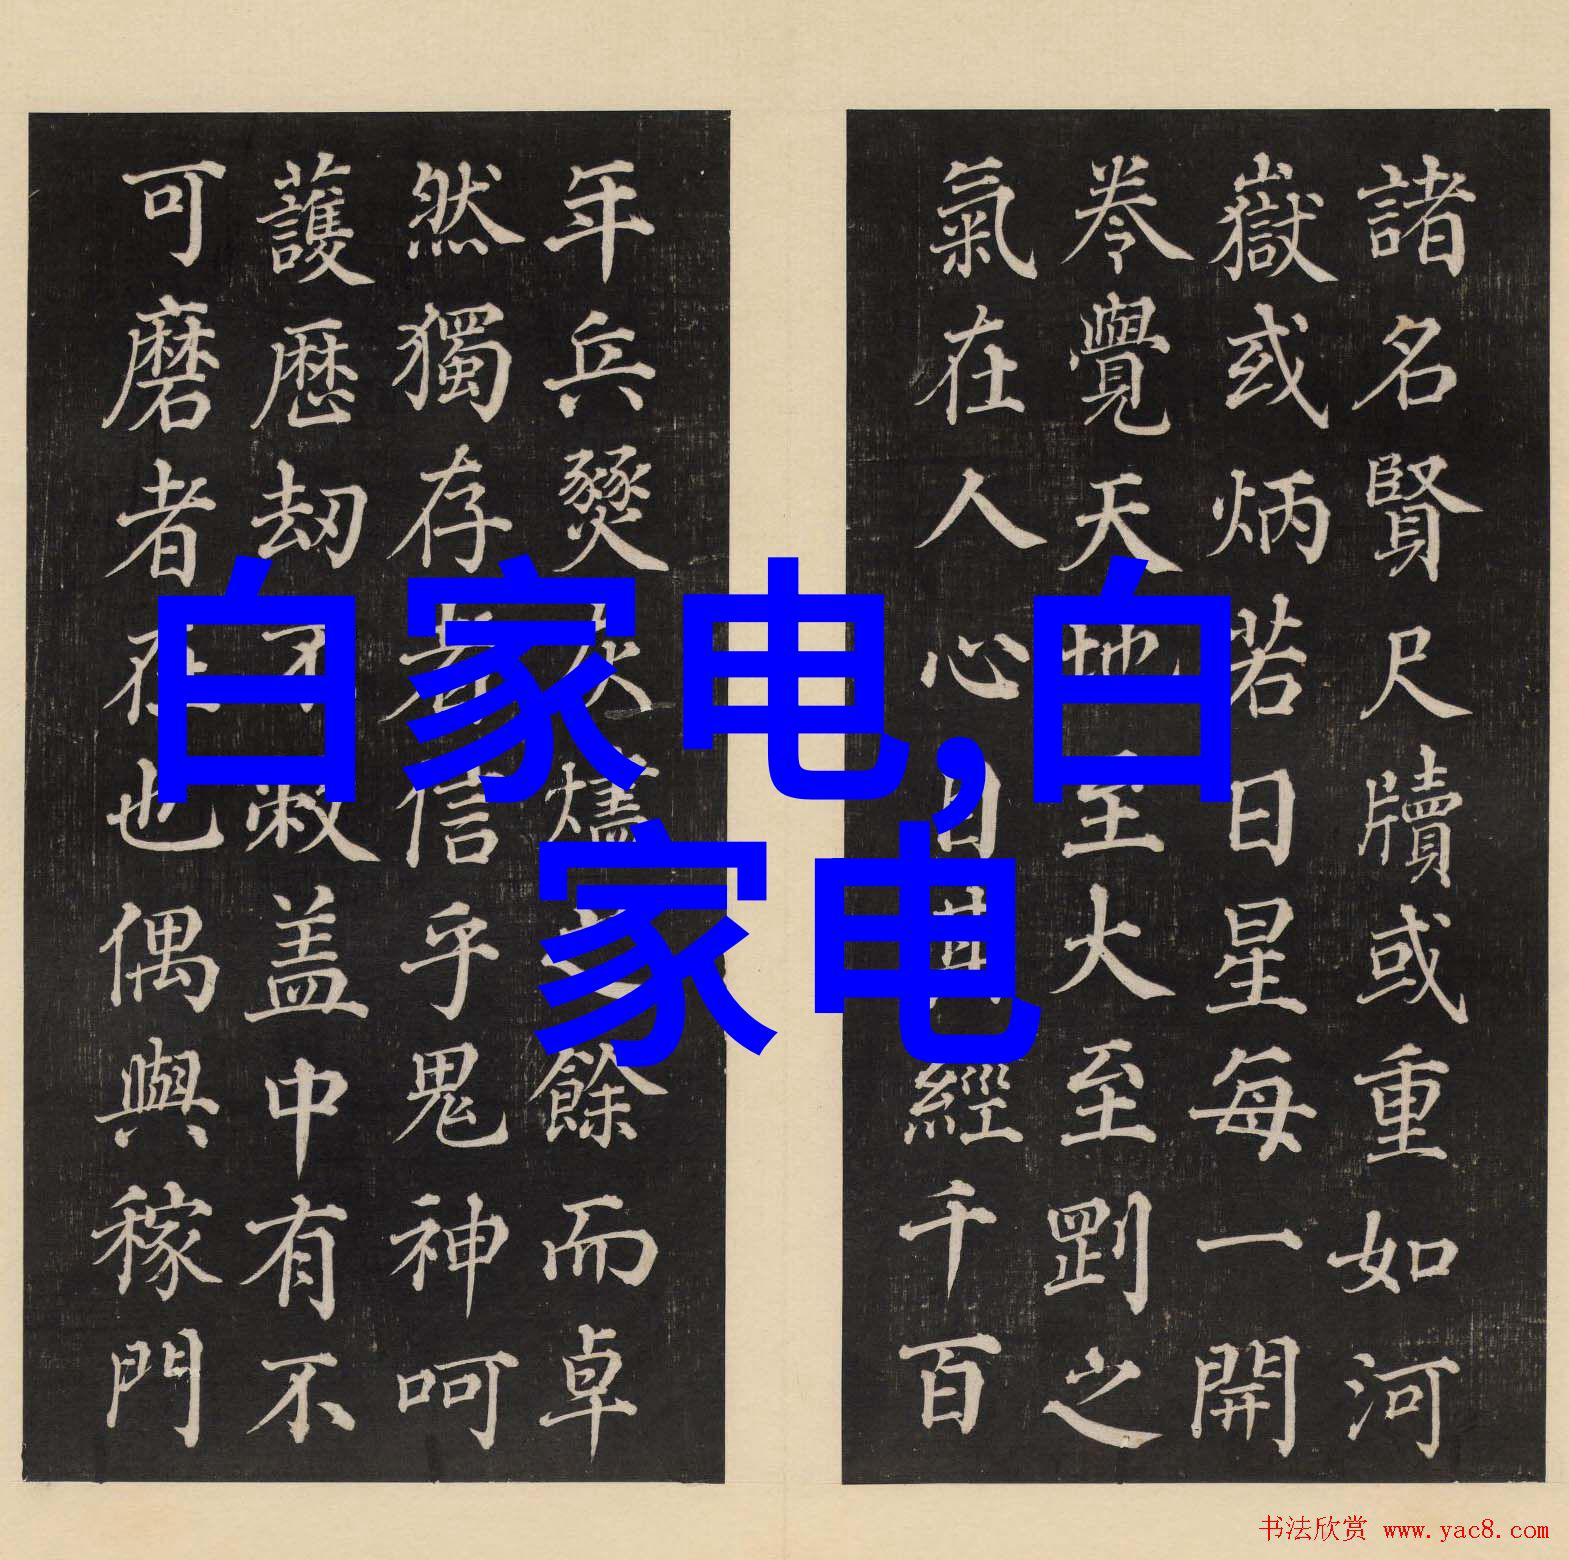 諸名賢尺牘或重如河
嶽或炳若日星每一開
卷覺天地至大至剛之
氣在人心目經千百
年兵燹灰燼餘而卓
然獨存者信乎鬼神呵
護厯刧不敝蓋中有不
可磨者在也偶與稼門
白家电,白
家电
书法欣赏 www.yac8.com